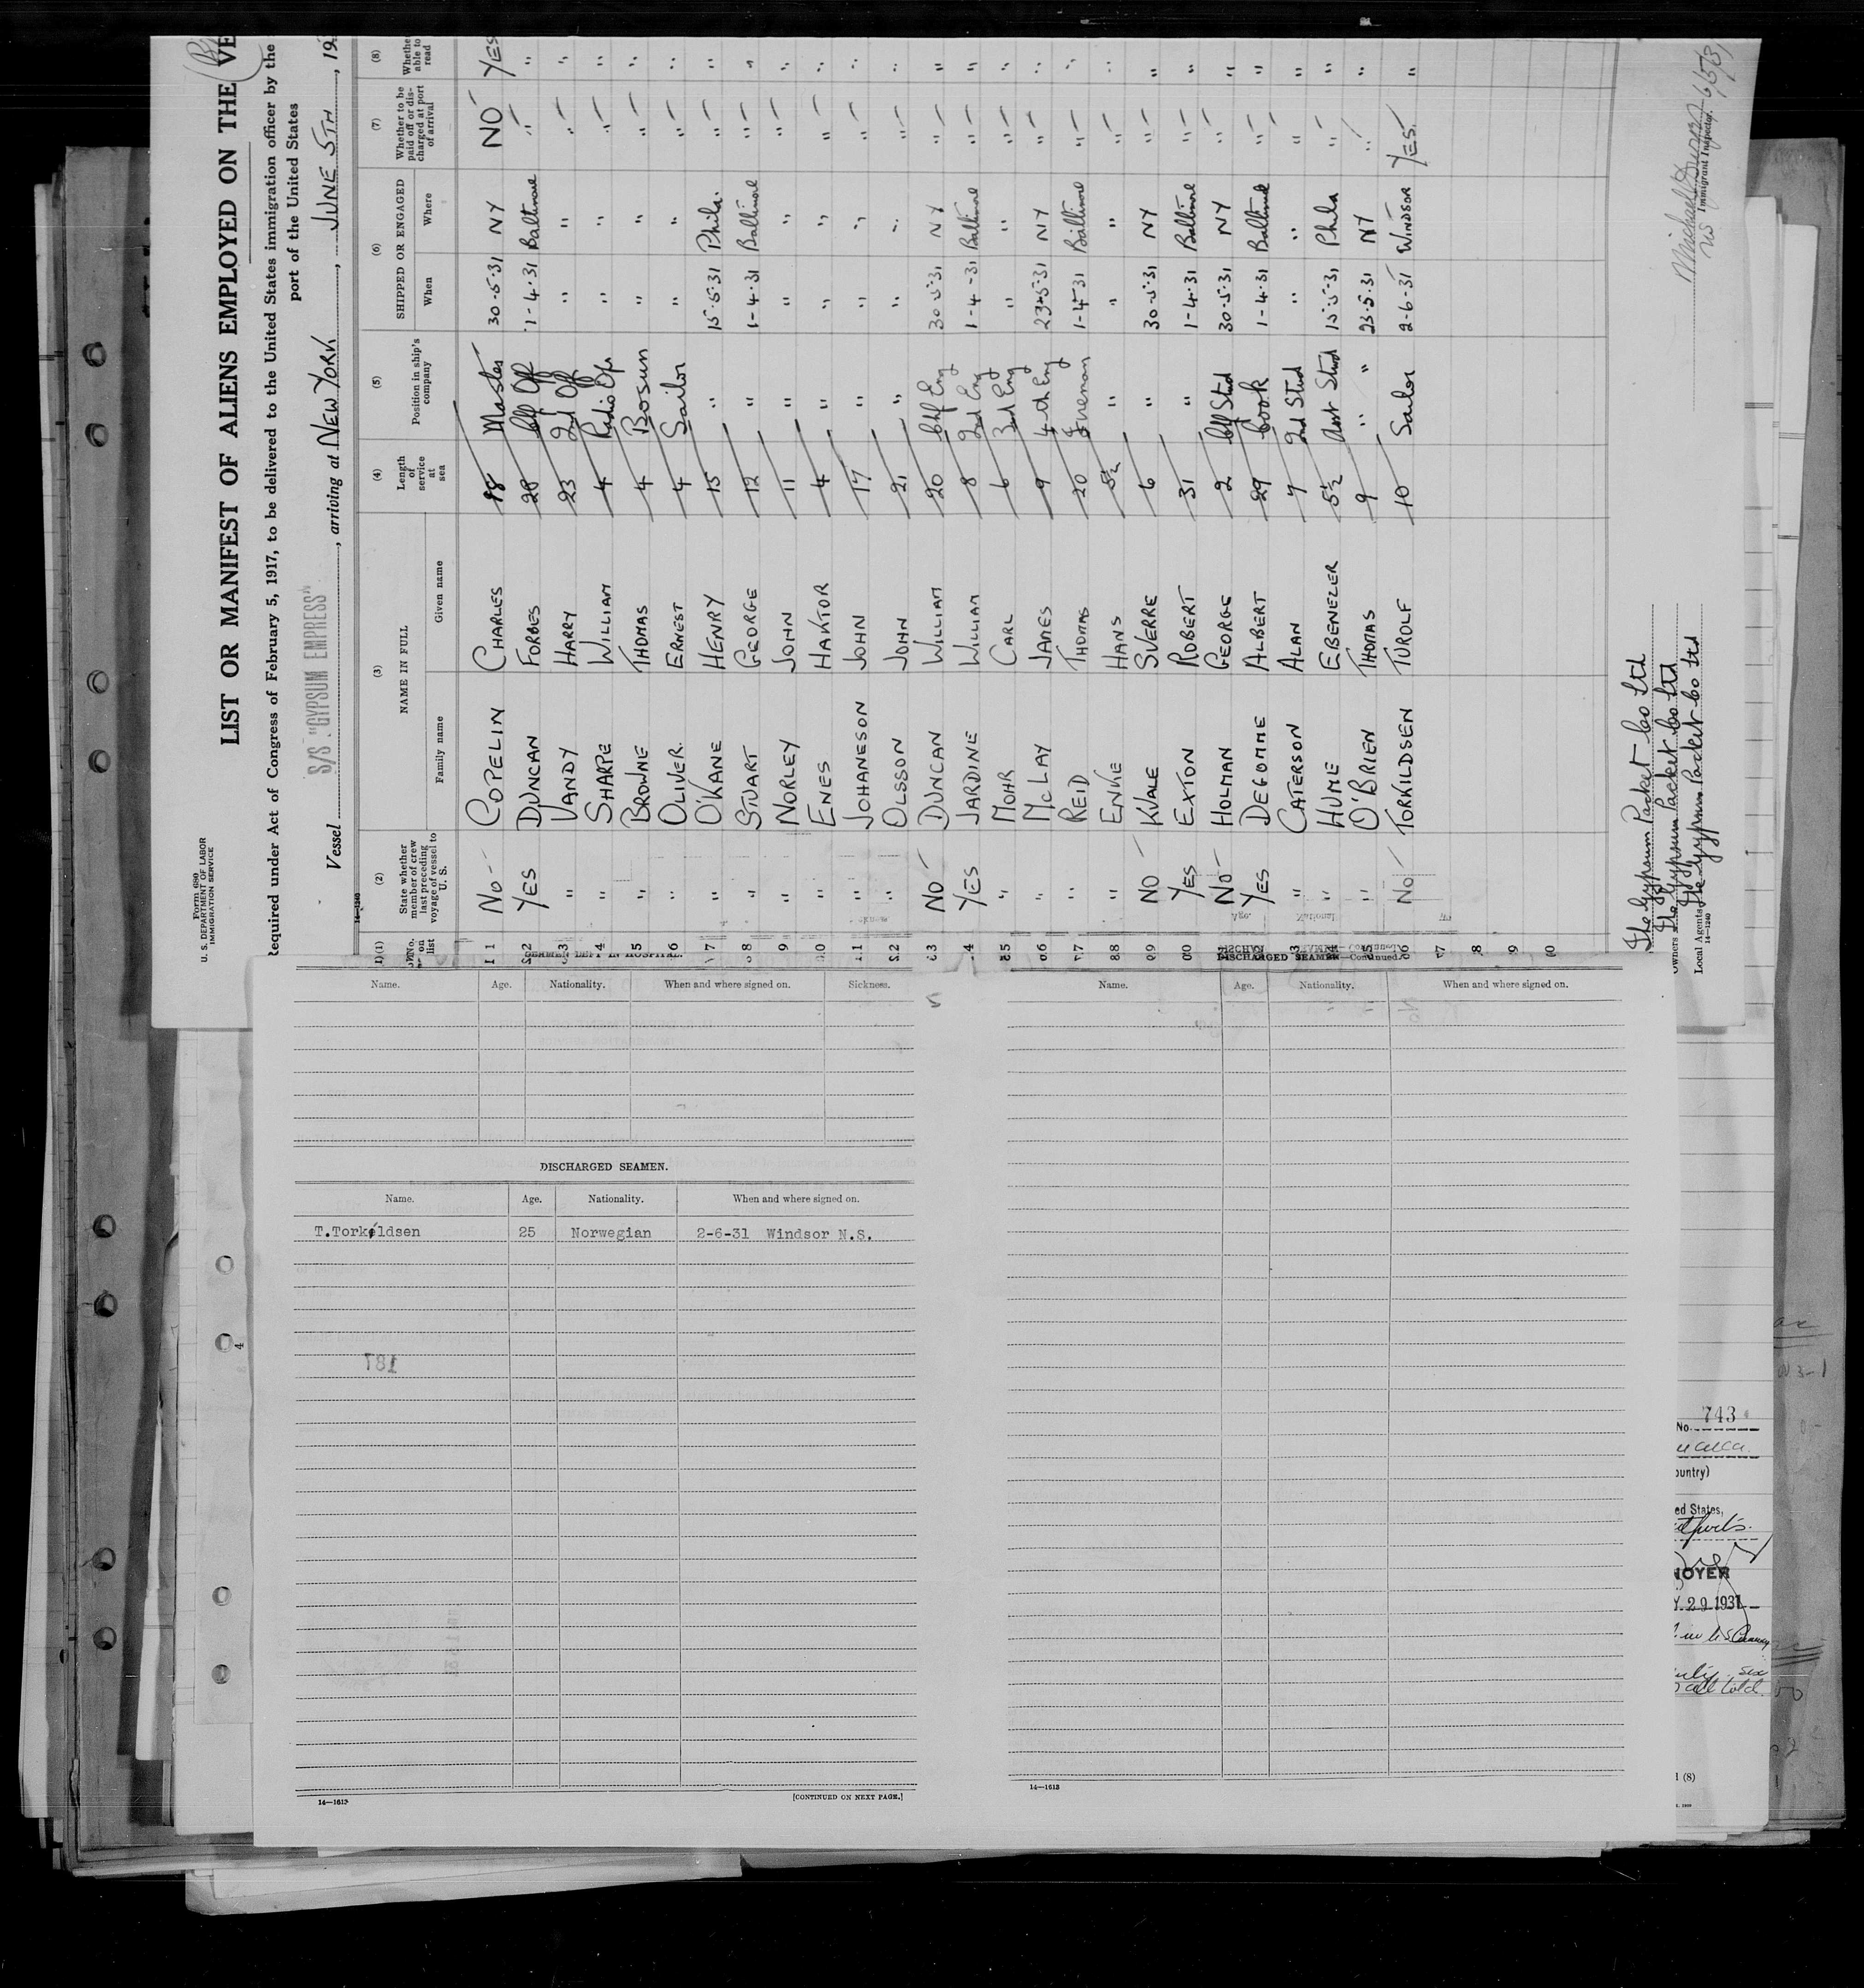 Form 680
U. S. DEPARTMENT OF LABOR
IMMIGRATION SERVICE
LIST OR MANIFEST OF ALIENS EMPLOYED ON THE VE
Required under Act of Congress of February 5, 1917, to be delivered to the United States immigration officer by the
port of the United States
Vessel S/S "GYPSUM EMPRESS", arriving at NEW YORK, JUNE 5TH, 19
(1) No. on list (2) State whether member of crew last preceding voyage of vessel to U. S. (3) NAME IN FULL Family name Given name (4) Length of service at sea (5) Position in ship's company (6) SHIPPED OR ENGAGED When Where (7) Whether to be paid off or discharged at port of arrival (8) Whether able to read
1 NO COPELIN CHARLES 18 Master 30-5-31 NY NO YES
2 YES DUNCAN FORBES 28 Chf Off 1-4-31 Baltimore " "
3 " VANDY HARRY 23 2nd Off " " " "
4 " SHARPE WILLIAM 4 Radio Opr " " " "
5 " BROWNE THOMAS 4 Bosun " " " "
6 " OLIVER. ERNEST 4 Sailor " " " "
7 " O'KANE HENRY 15 " 15-5-31 Phila. " "
8 " STUART GEORGE 12 " 1-4-31 Baltimore " "
9 " NORLEY JOHN 11 " " " " "
10 " ENES HAKTOR 4 " " " " "
11 " JOHANESON JOHN 17 " " " " "
12 " OLSSON JOHN 21 " " " " "
13 NO DUNCAN WILLIAM 20 Chf Eng 30-5-31 NY " "
14 YES JARDINE WILLIAM 8 2nd Eng 1-4-31 Baltimore " "
15 " MOHR CARL 6 3rd Eng " " " "
16 " McLAY JAMES 9 4th Eng 23-5-31 NY " "
17 " REID THOMAS 20 Fireman 1-4-31 Baltimore " "
18 " ENKE HANS 5½ " " " " "
19 NO KVALE SVERRE 6 " 30-5-31 NY " "
20 YES EXTON ROBERT 31 " 1-4-31 Baltimore " "
21 NO HOLMAN GEORGE 2 Chf Stwd 30-5-31 NY " "
22 YES DEGOMME ALBERT 29 Cook 1-4-31 Baltimore " "
23 " CATERSON ALAN 7 2nd Stwd " " " "
24 " HUME EBENEZER 5½ Asst Stwd 15-5-31 Phila " "
25 " O'BRIEN THOMAS 9 " " 23-5-31 NY " "
26 NO TORKILDSEN TUROLF 10 Sailor 2-6-31 WINDSOR YES. "
27
28
29
30
The Gypsum Packet Co Ltd
Owners The Gypsum Packet Co Ltd
Local Agents The Gypsum Packet Co Ltd
14—1240
US Immigrant Inspector.
SEAMEN LEFT IN HOSPITAL.
Name. Age. Nationality. When and where signed on. Sickness.
DISCHARGED SEAMEN.
Name. Age. Nationality. When and where signed on.
T.Torkildsen 25 Norwegian 2-6-31 Windsor N.S.
187
14—1613
[CONTINUED ON NEXT PAGE.]
DISCHARGED SEAMEN—Continued.
Name. Age. Nationality. When and where signed on.
14—1613
4
No. 743
ountry)
ed States,
NOYER
Y 29 1931
all told
(8)